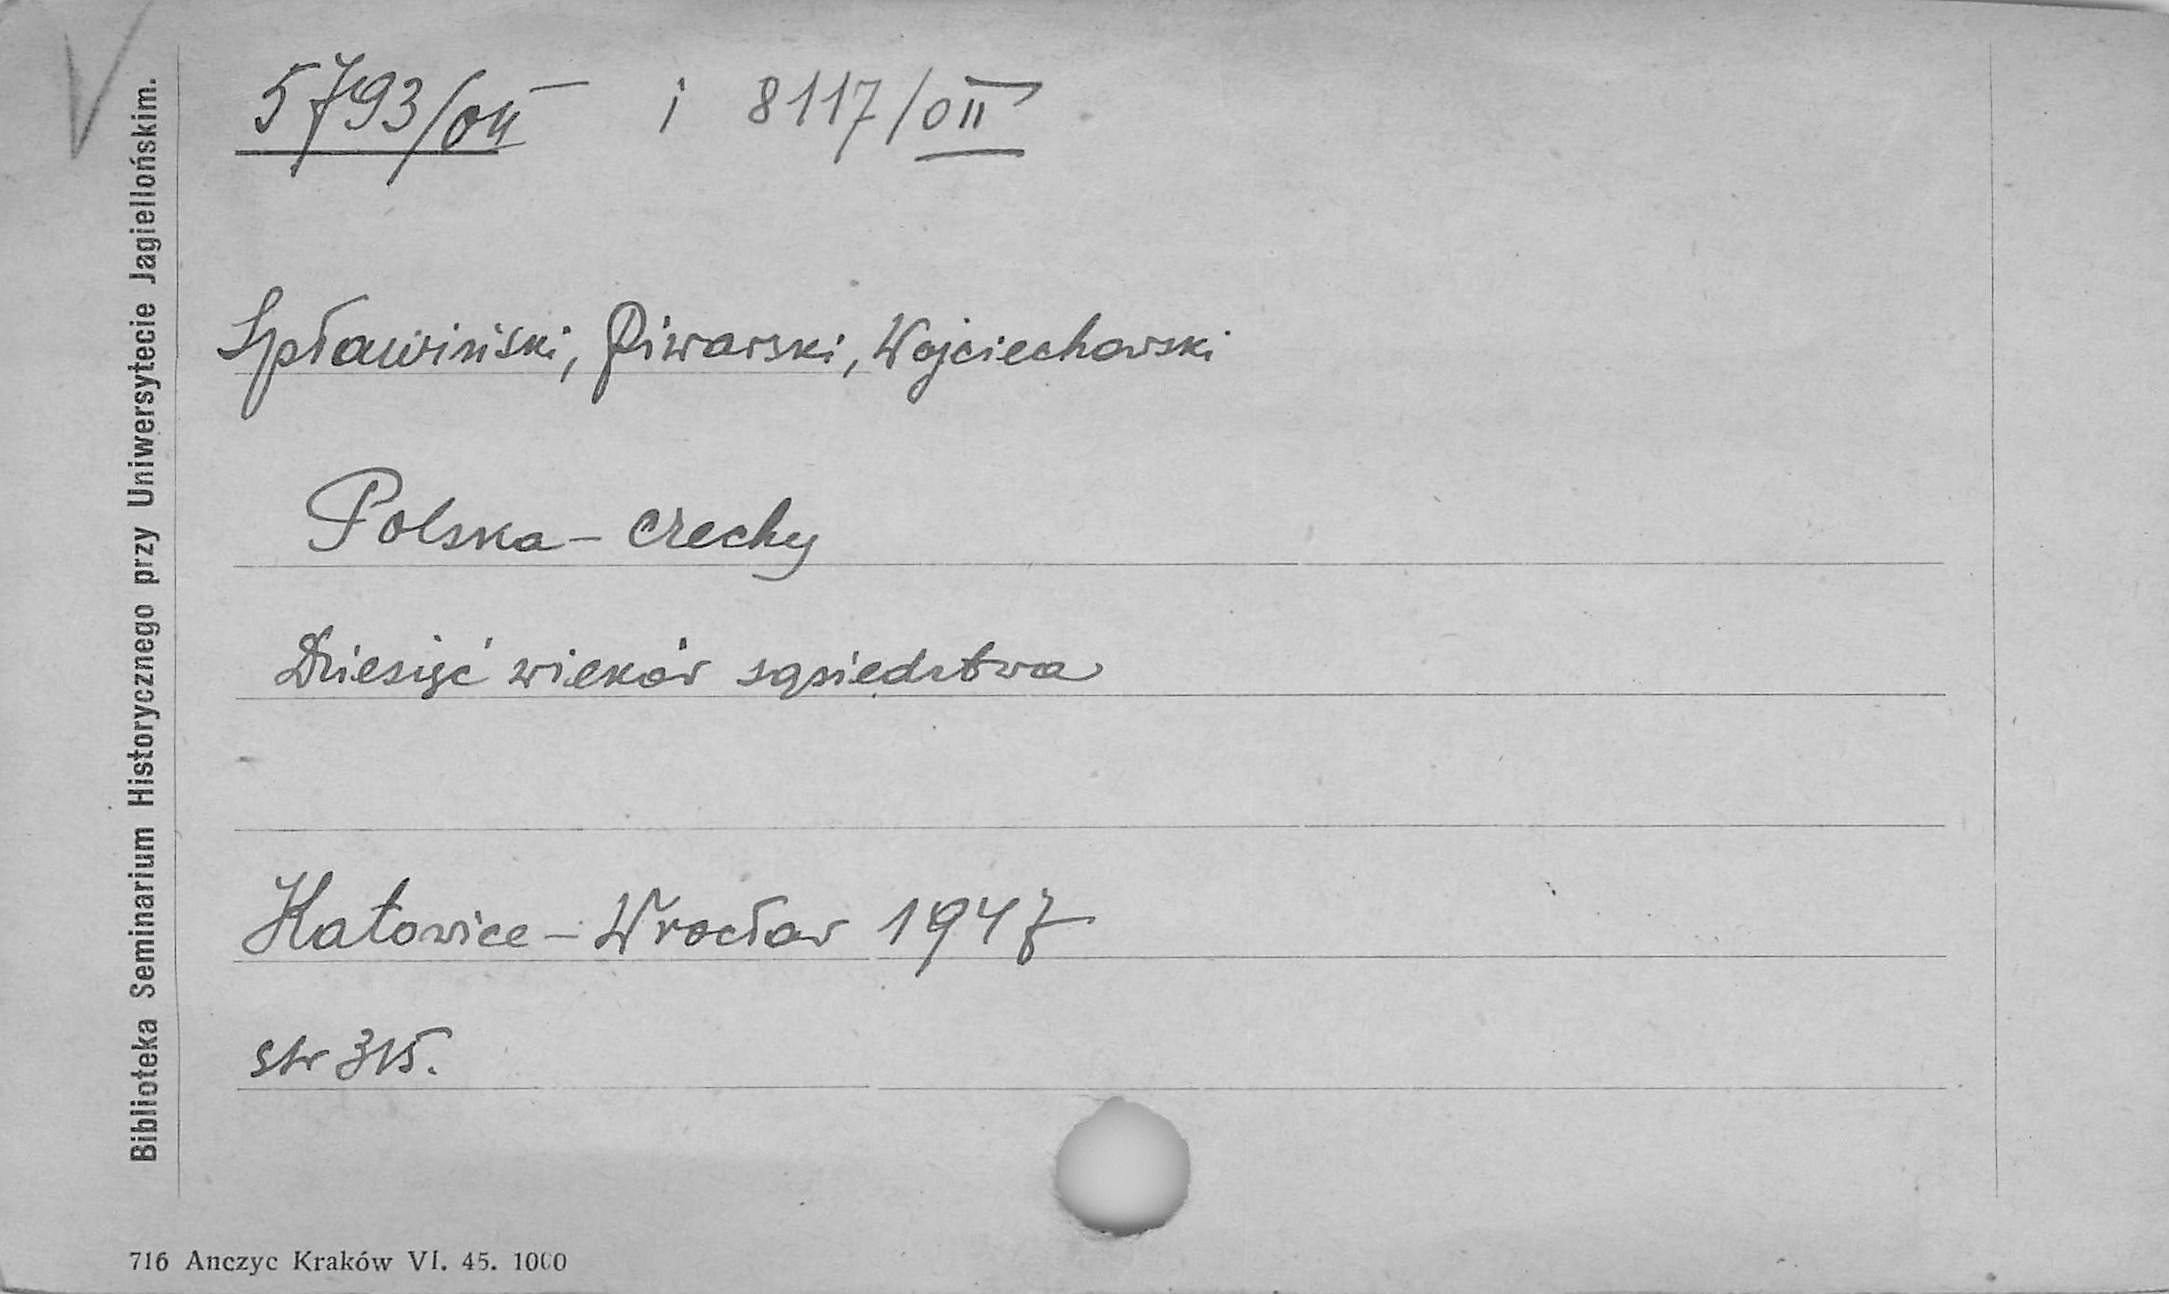 5793/OII i 8117/OII
Spławiński, Piwarski, Wojciechowski
Polska - Czechy
Dziesięć wieków sąsiedztwa
Katowice - Wrocław 1947
str 315.
Biblioteka Seminarium Historycznego przy Uniwersytecie Jagiellońskim.
716 Anczyc Kraków VI. 45. 1000